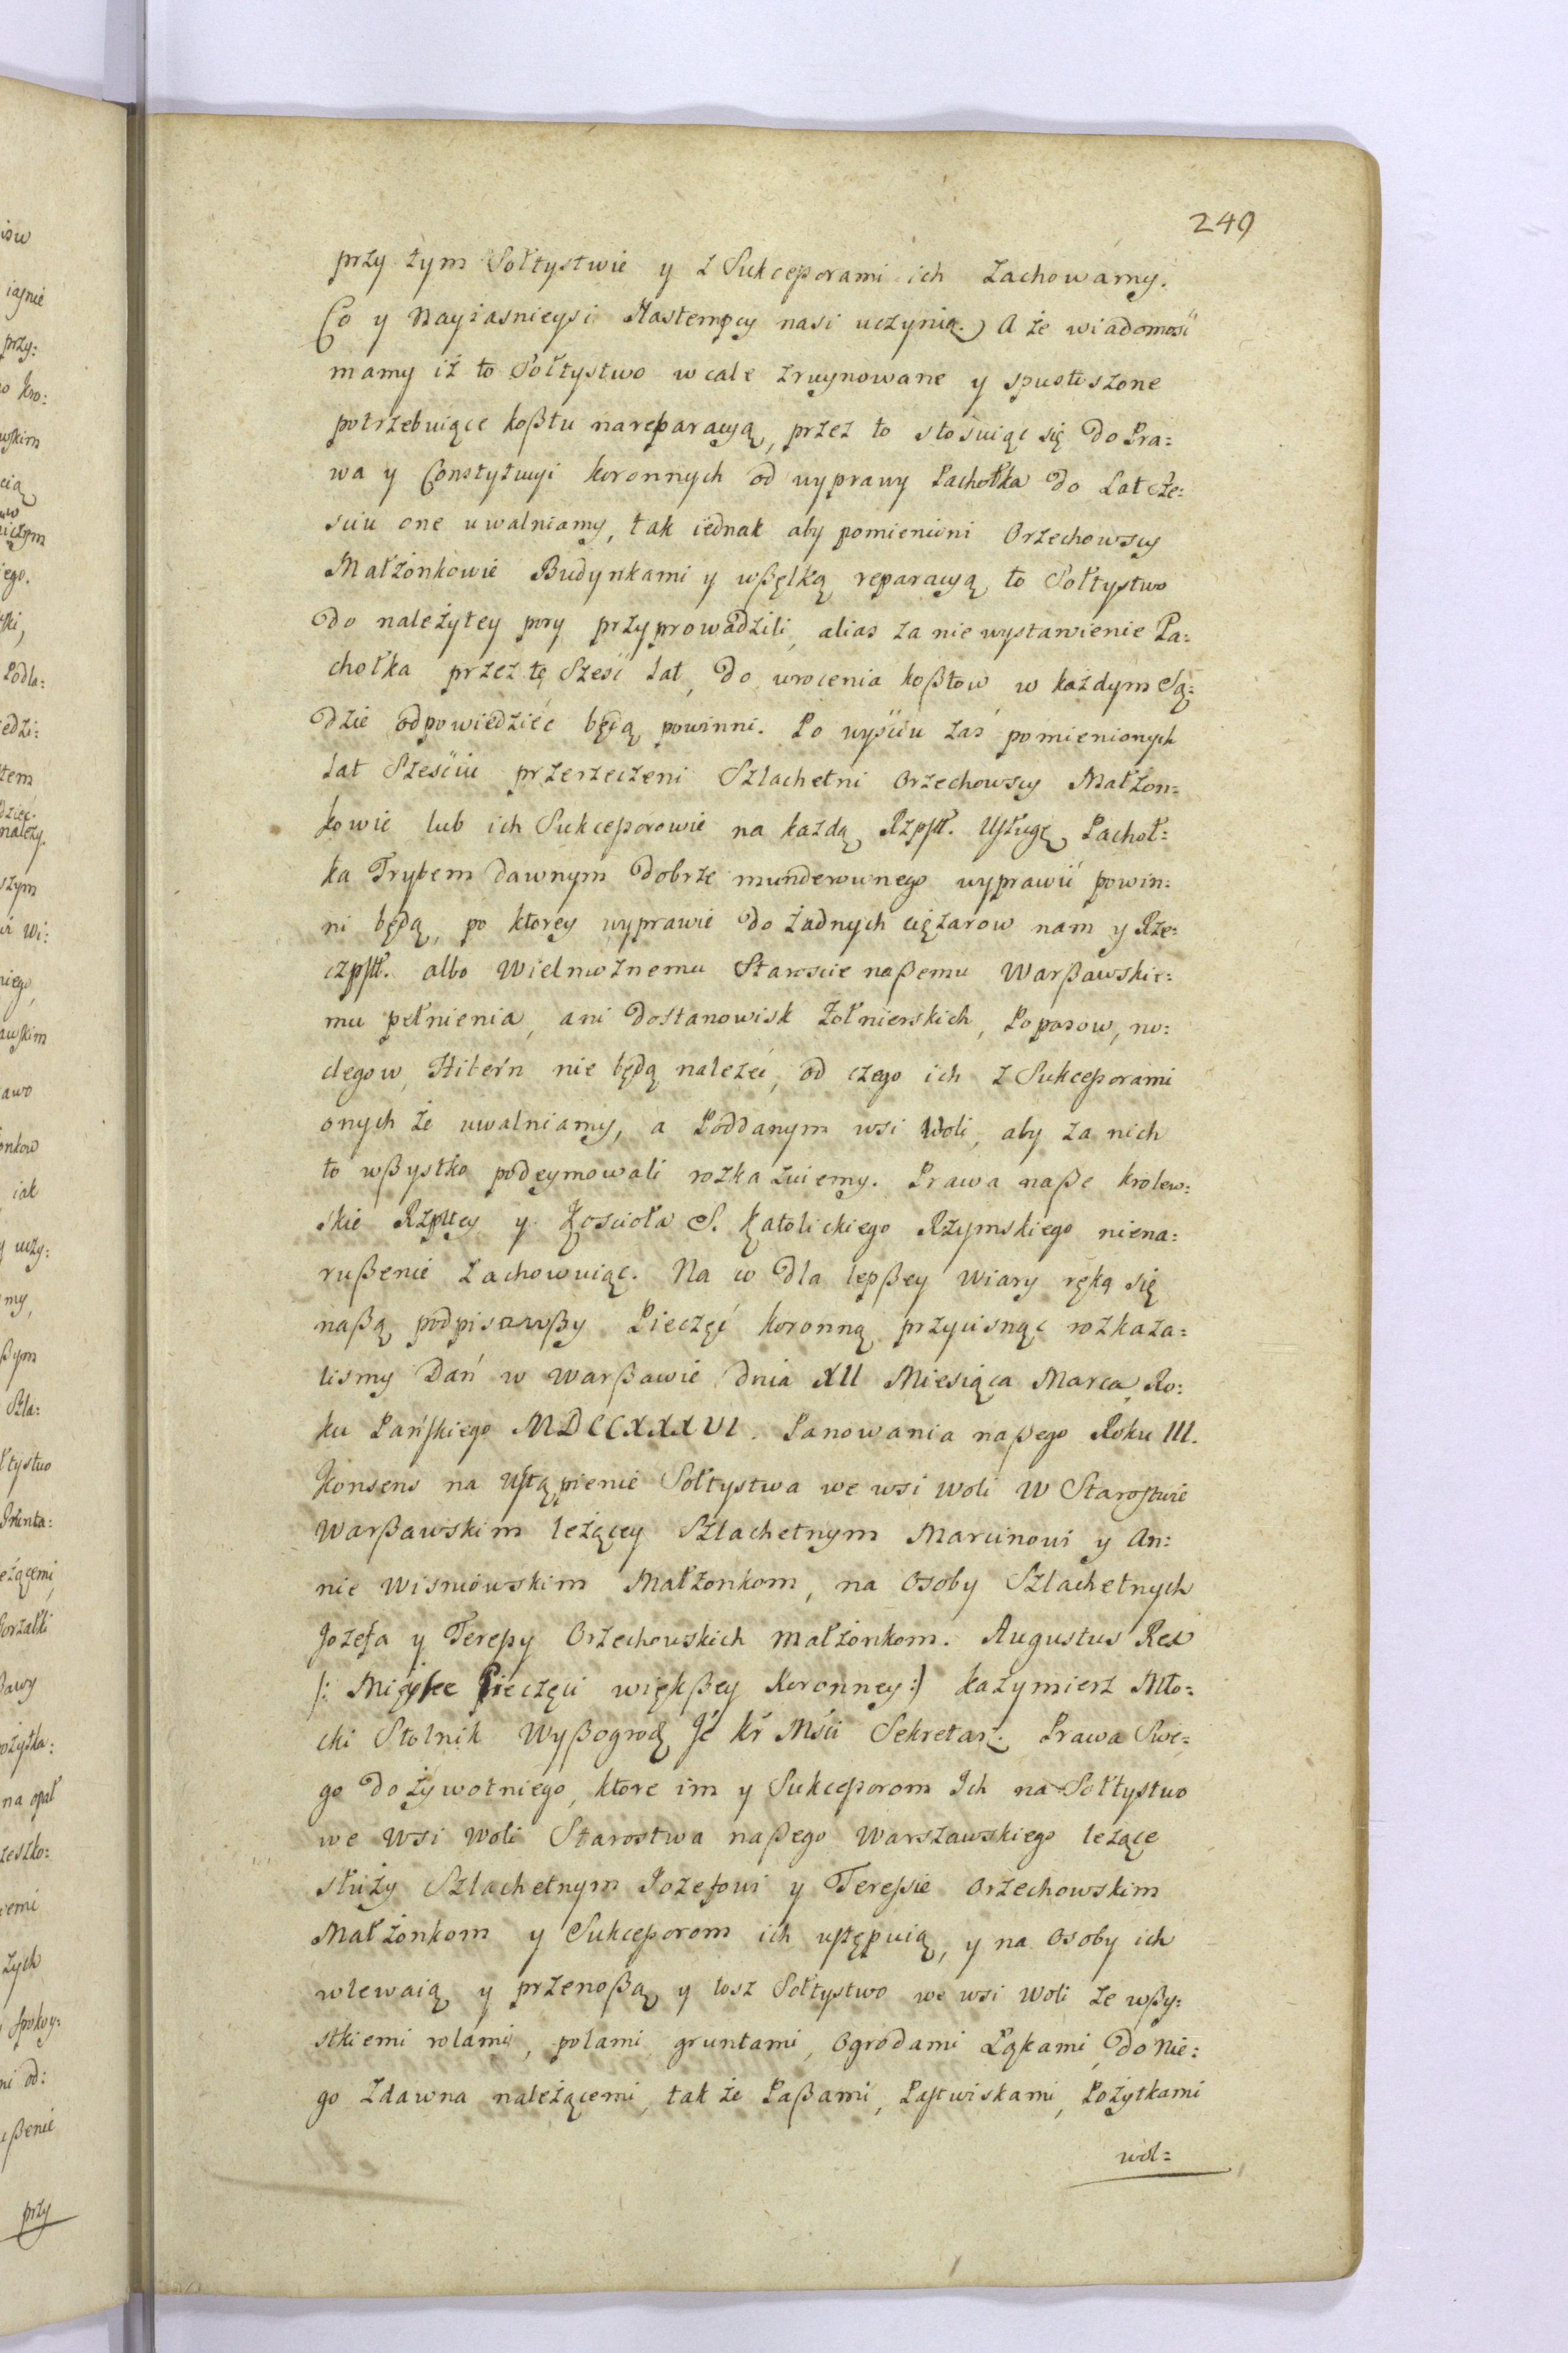 249
przy tym Sołtystwie y z Sukceßorami ich zachowamy.
Co y Nayiasnieysi Nastempcy nasi uczynią.) A że wiadomość
mamy iż to Sołtystwo wcale zruynowane y spustoszone
potrzebuiące koßtu na reparacyą, przez to stosuiąc się do Pra=
wa y Constytucyi koronnych od wyprawy Pachołka do Lat Sze=
sciu one uwalniamy, tak iednak aby pomienieni Orzechowscy
Małżonkowie Budynkami y wßelką reparacyą to Sołtystwo
do należytey pory przyprowadzili, alias za nie wystawienie Pa=
chołka przez tę Szesć Lat, do wrocenia koßtow w każdym Są=
dzie odpowiedzieć będą powinni. Po wyściu zaś pomienionych
Lat Sześciu przerzeczeni Szlachetni Orzechowscy Małżon=
kowie lub ich Sukceßorowie na każdą Rzpltt. Usługę Pachoł=
ka Trybem dawnym dobrze munderownego wyprawić powin=
ni będą, po ktorey wyprawie do żadnych ciężarow nam y Rze=
czpltt. albo Wielmożnemu Staroscie naßemu Warßawskie=
mu pełnienia, ani do stanowisk Żołnierskich, Popasow, no=
clegow, Hibern nie będą należeć, od czego ich z Sukceßorami
onych że uwalniamy, a Poddanym wsi Woli, aby za nich
to wßystko podeymowali rozkazuiemy. Prawa naße krolew=
skie Rzpltey y Kościoła S. Katolickiego Rzymskiego niena=
rußenie zachowuiąc. Na co dla lepßey wiary ręką się
naßą podpisawßy Pieczęć koronną przycisnąć rozkaza=
lismy Dań w Warßawie dnia XII Miesiąca Marca Ro=
ku Pańskiego MDCCXXXVI. Panowania naßego Roku III.
Konsens na Ustąpienie Sołtystwa we wsi Woli w Starostwie
Warßawskim leżącey Szlachetnym Marcinowi y An=
nie Wisniowskim Małżonkom, na Osoby Szlachetnych
Jozefa y Tereßy Orzechowskich małżonkom. Augustus Rex
/: Mieysce Pieczęci więkßey Koronney :/ Kazymierz Mło=
cki Stolnik Wyßogrodz Jė Kr Mści Sekretarz. Prawa Swe=
go dożywotniego, ktore im y Sukceßorom Ich na Sołtystwo
we Wsi Woli Starostwa naßego Warszawskiego leżące
służy Szlachetnym Jozefowi y Tereßie Orzechowskim
Małżonkom y Sukceßorom ich ustępuią, y na Osoby ich
wlewaią y przenoßą y tosz Sołtystwo we wsi Woli ze wßy=
stkiemi rolami, polami, gruntami, Ogrodami Łąkami, do nie=
go zdawna należącemi, tak że Paßami, Pastwiskami, Pożytkami
wol=